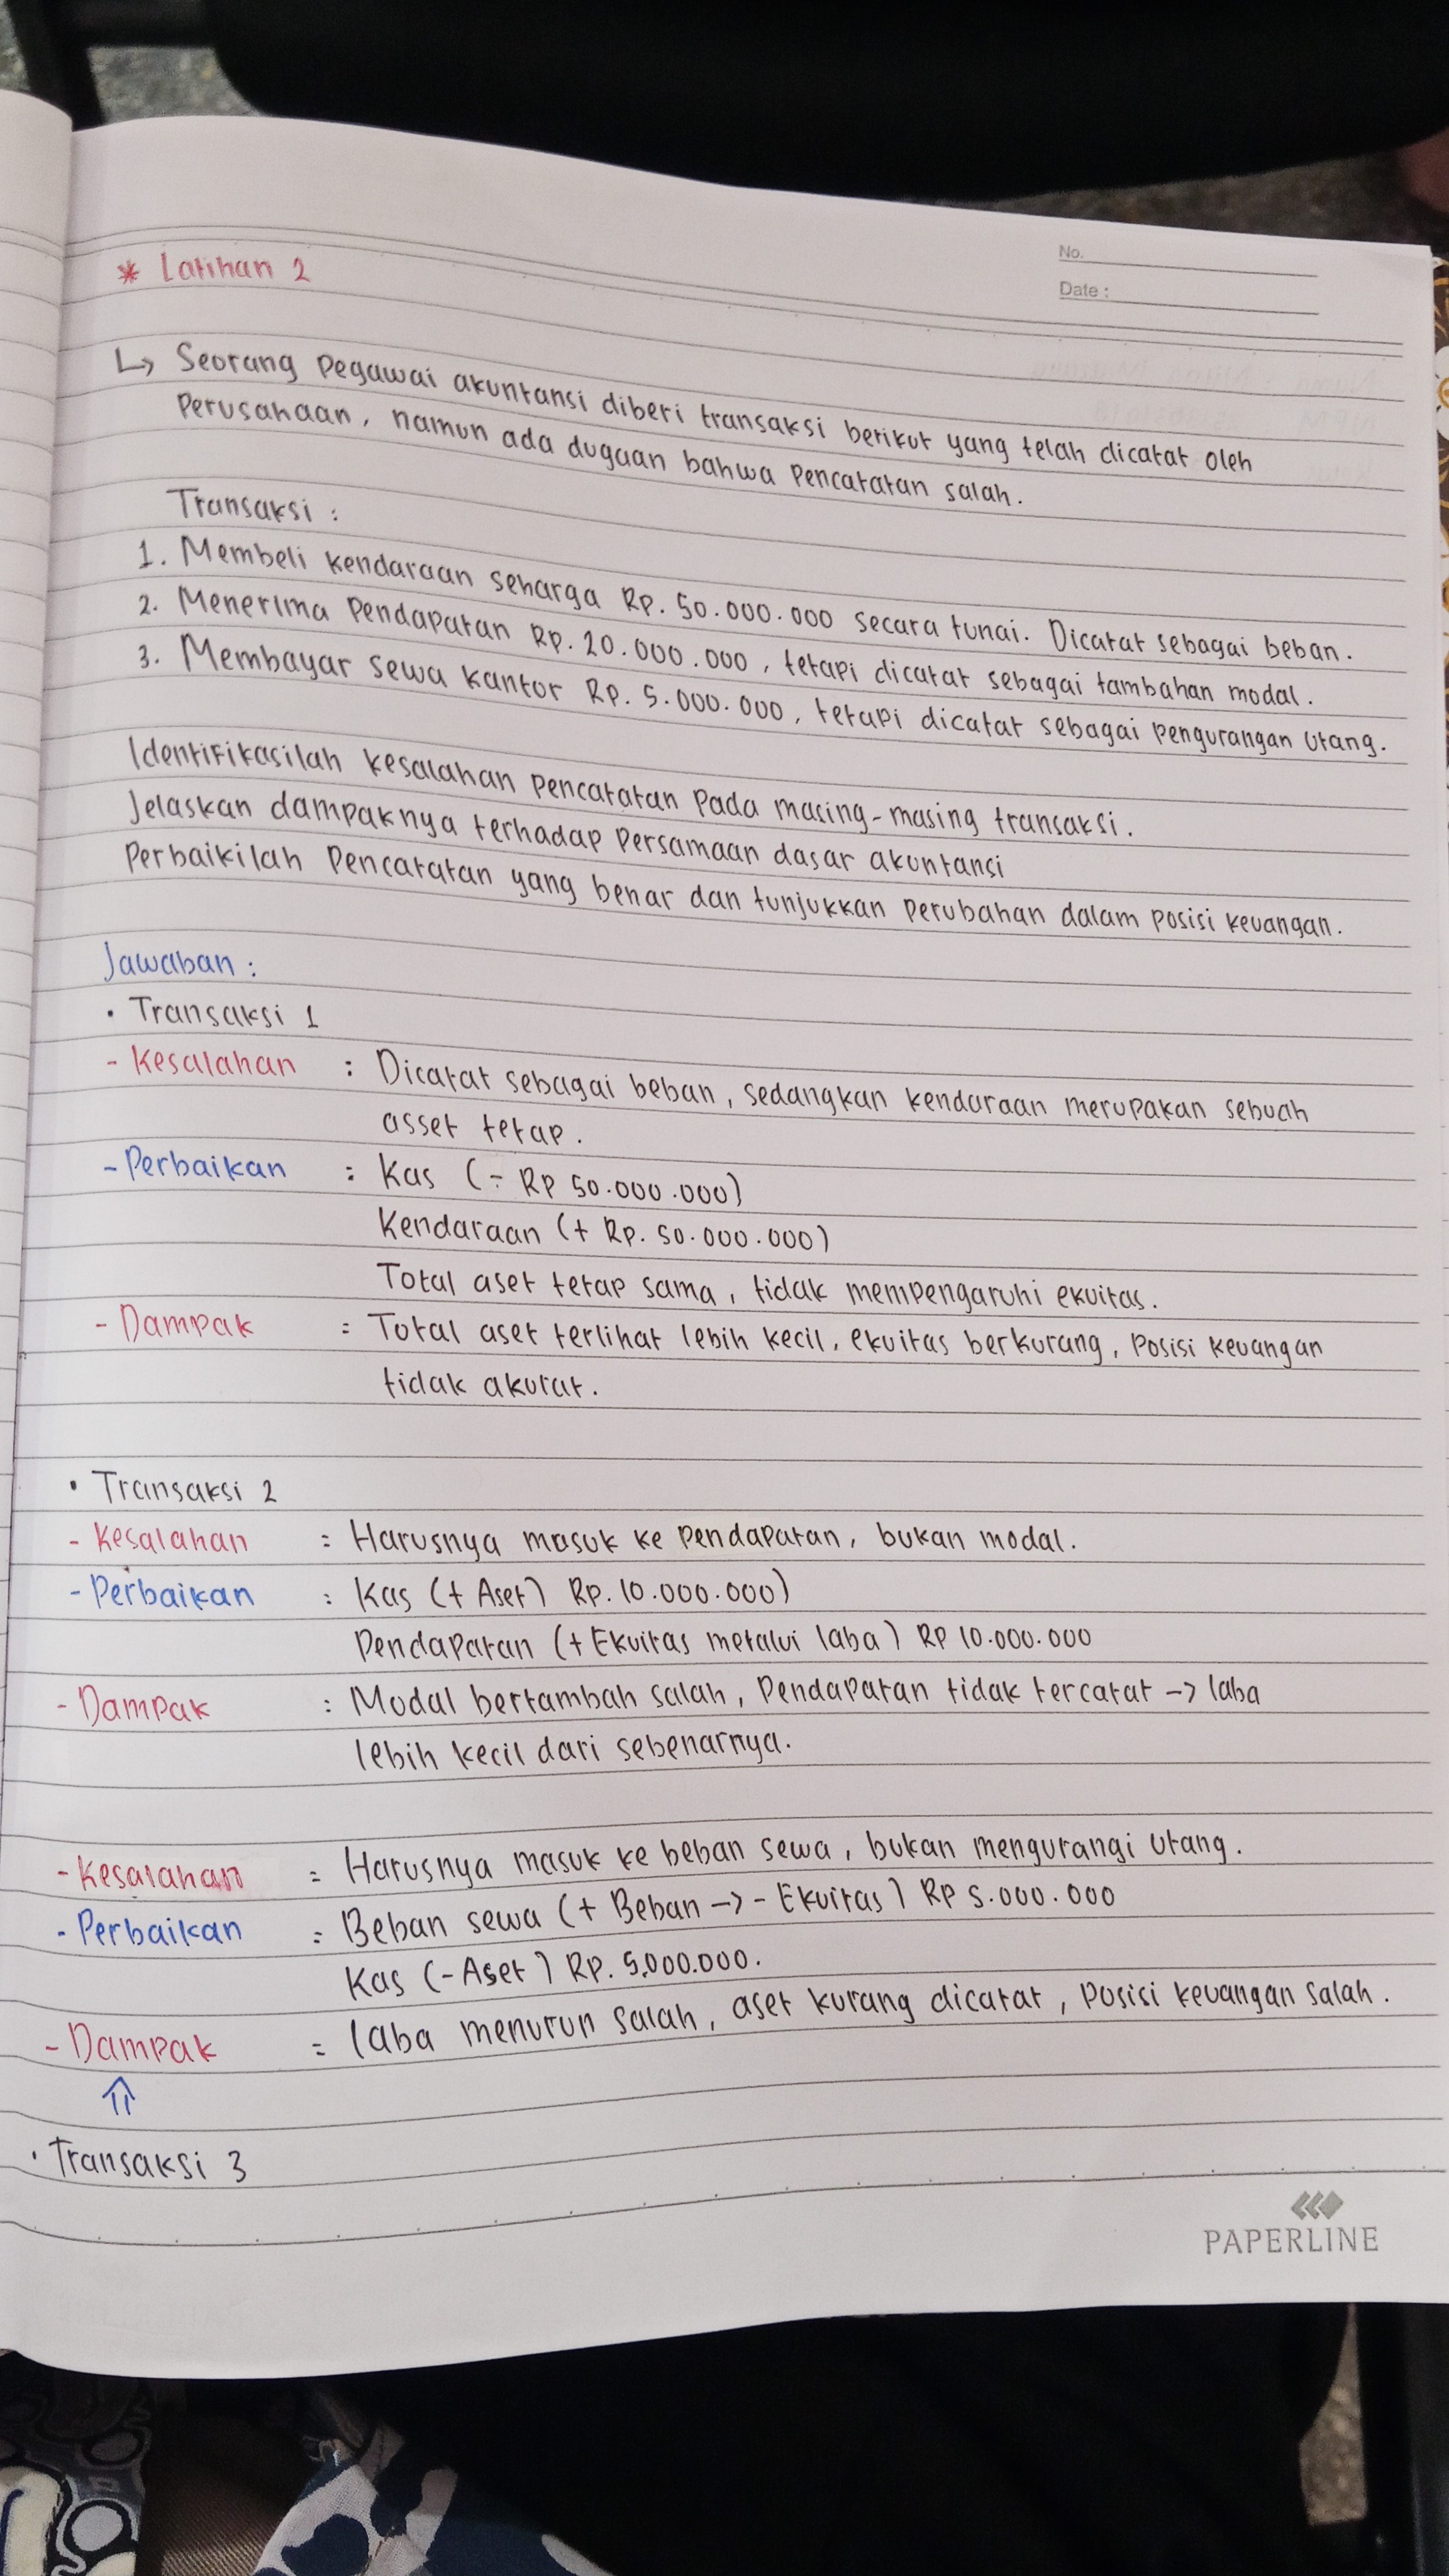 No.
Date :
* Latihan 2
↳ Seorang pegawai akuntansi diberi transaksi berikut yang telah dicatat oleh
Perusahaan, namun ada dugaan bahwa Pencatatan salah.
Transaksi :
1. Membeli kendaraan seharga Rp. 50.000.000 secara tunai. Dicatat sebagai beban.
2. Menerima Pendapatan Rp. 20.000.000, tetapi dicatat sebagai tambahan modal.
3. Membayar sewa kantor Rp. 5.000.000, tetapi dicatat sebagai pengurangan utang.
Identifikasilah kesalahan pencatatan pada masing-masing transaksi.
Jelaskan dampaknya terhadap Persamaan dasar akuntansi
Perbaikilah Pencatatan yang benar dan tunjukkan perubahan dalam posisi keuangan.
Jawaban :
• Transaksi 1
- Kesalahan : Dicatat sebagai beban, sedangkan kendaraan merupakan sebuah
asset tetap.
- Perbaikan : Kas (- Rp 50.000.000)
Kendaraan (+ Rp. 50.000.000)
Total aset tetap sama, tidak mempengaruhi ekuitas.
- Dampak : Total aset terlihat lebih kecil, ekuitas berkurang, Posisi keuangan
tidak akurat.
• Transaksi 2
- Kesalahan : Harusnya masuk ke pendapatan, bukan modal.
- Perbaikan : Kas (+ Aset) Rp. 10.000.000)
Pendapatan (+ Ekuitas metalui laba) Rp 10.000.000
- Dampak : Modal bertambah salah, Pendapatan tidak tercatat -> laba
lebih kecil dari sebenarnya.
- Kesalahan : Harusnya masuk ke beban sewa, bukan mengurangi utang.
- Perbaikan : Beban sewa (+ Beban -> - Ekuitas) Rp 5.000.000
Kas (- Aset) Rp. 5.000.000.
- Dampak : laba menurun salah, aset kurang dicatat, Posisi keuangan salah.
⇑
• Transaksi 3
PAPERLINE